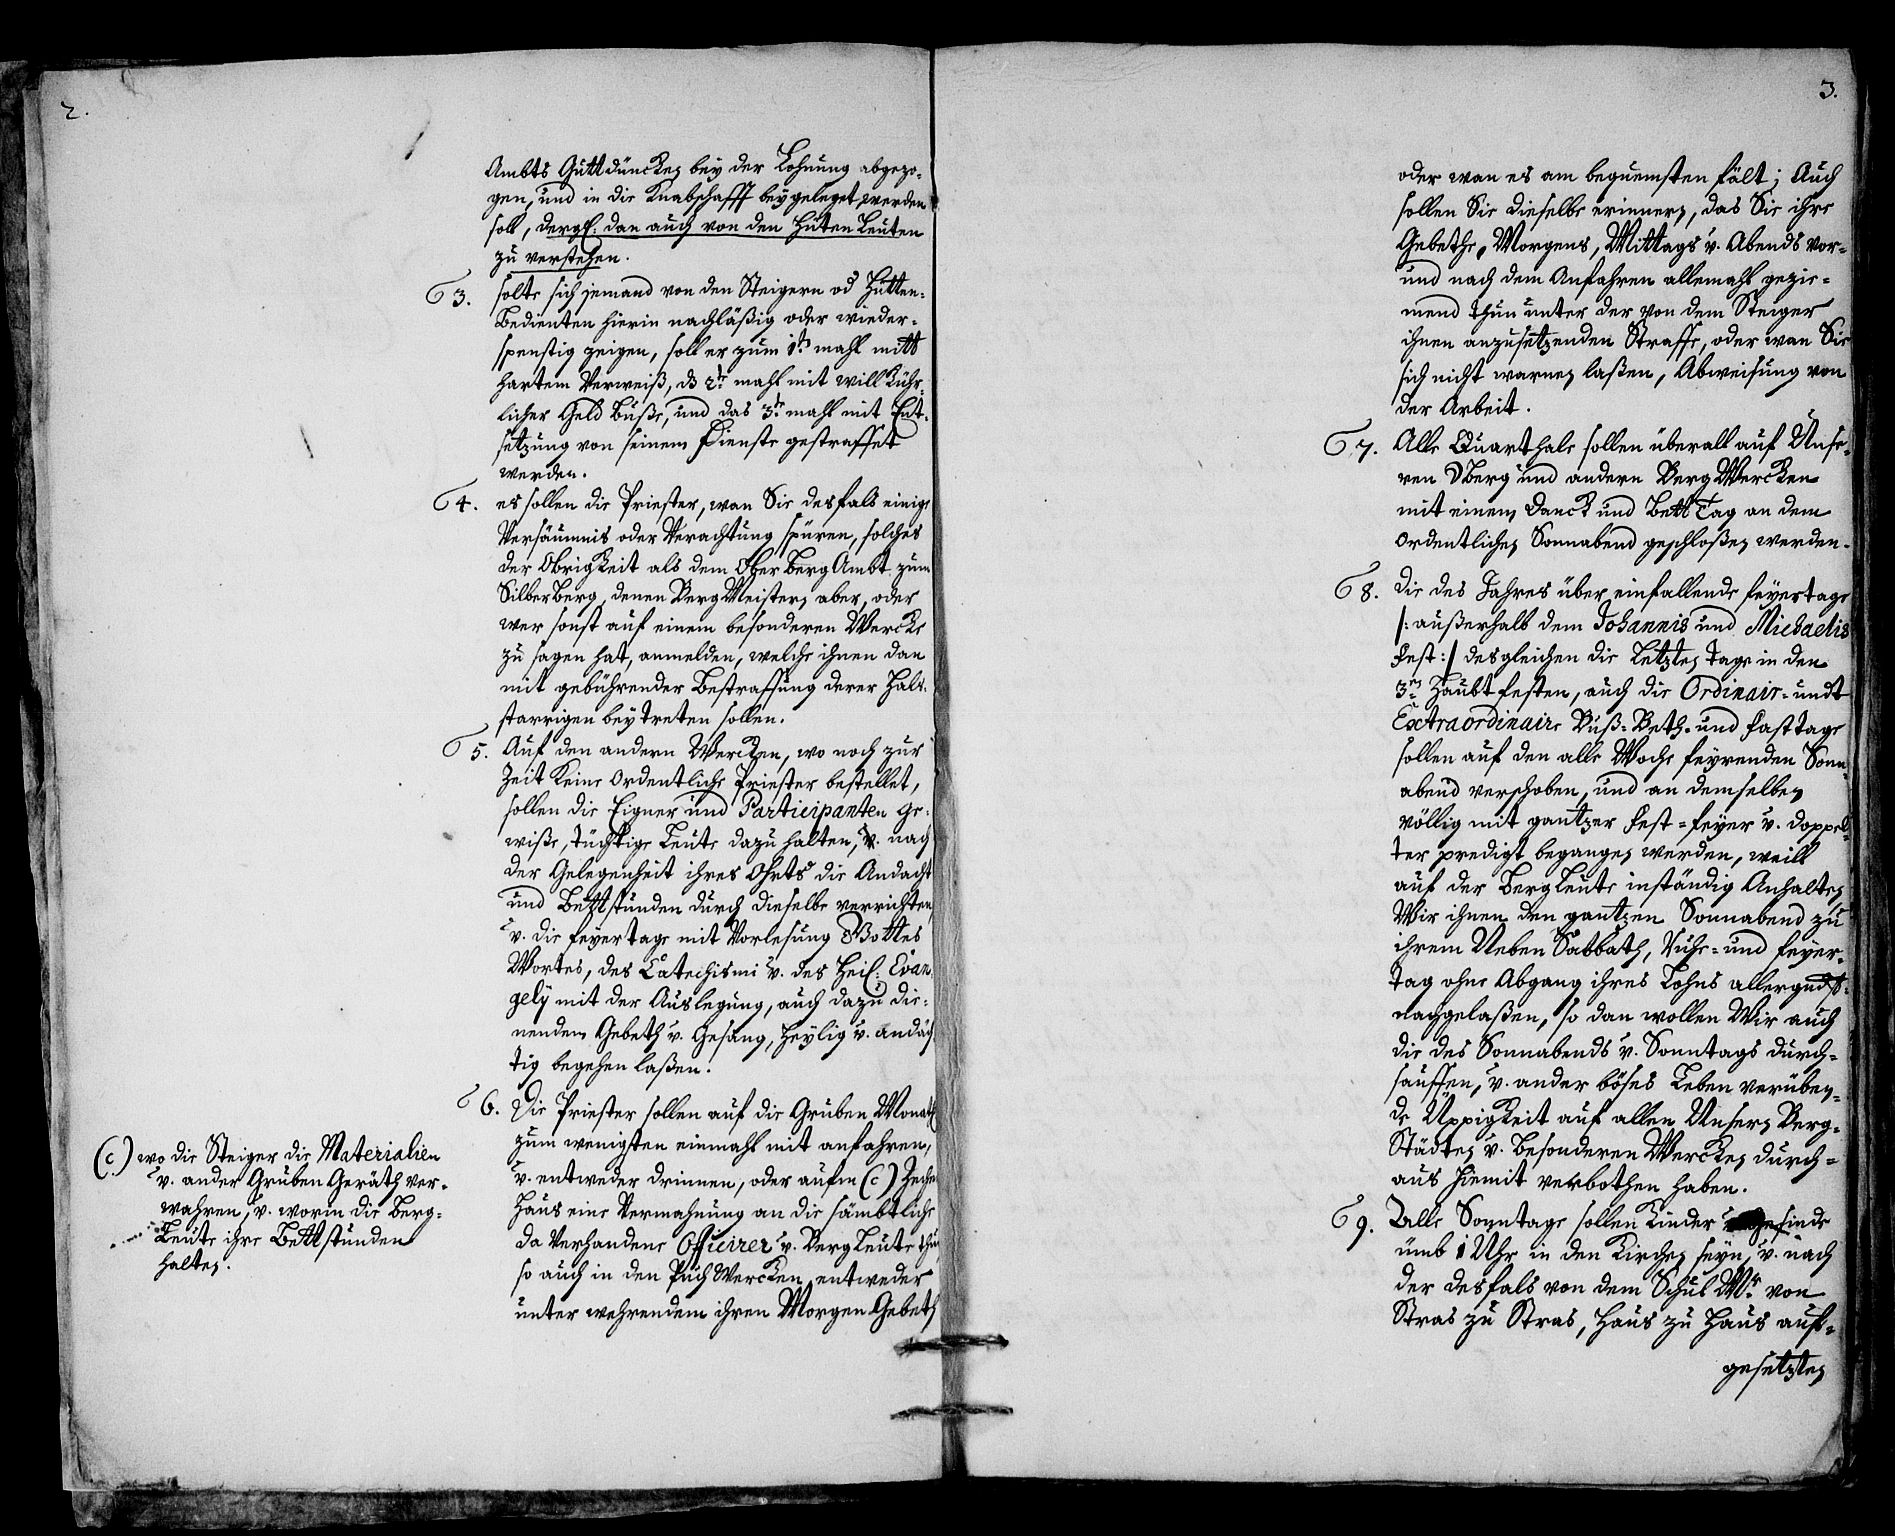 2.
Ambts Guttdüncken bey der Lohnung abgezo-
gen, und in die Knabschafft beygeleget werden
soll, dergl: dan auch von den Hüten Leuten
zu verstehen.
§ 3. solte sich jemand von den Steigern od Hütten-
Bedienten hierin nachläßig oder wieder-
spenstig zeigen, soll er zum 1st mahl mitt
hartem Verweiß, ds 2te mahl mit willkühr
licher Geld Buße, und das 3te mahl mit Ent-
setzung von seinem Dienste gestraffet
werden.
§ 4. es sollen die Priester, wan Sie desfals einige
Versäumnis oder Verachtung spüren, solches
der Obrigkeit als dem Ober Berg Ambt zum
Silberberg, denen BergMeistern aber, oder
wer sonst auf einem besonderen Wercke
zu sagen hat, anmelden, welche ihnen dan
mit gebührender Bestraffung derer Hals-
starrigen beytreten sollen.
§ 5. Auf den andern Wercken, wo noch zur
Zeit keine ordentliche Priester bestellet,
sollen die Eigner und Participanten ge-
wiße, tüchtige Leute dazu halten, u. nach
der Gelegenheit ihres Ohrts die Andacht
und Bettstunden durch dieselbe verrichten,
u. die feyertage mit Vorlesung Gottes
Wortes, des Catechismi u. des Heil: Evan
gelÿ mit der Auslegung, auch dazu die-
nendem Gebeth u. Gesang, heylig u. andäch
tig begehen laßen.
§ 6. Die Priester sollen auf die Gruben Monath
zum wenigsten einmahl mit anfahren,
u. entweder drinnen, oder aufm (c) Zechen
Haus eine Vermahnung an die sämbtliche
da Verhandene Officirer u. Bergleute thun
so auch in den PuchWercken entweder
unter wehrendem ihren Morgen Gebeth
(c) wo die Steiger die Materialien
u. ander Gruben Geräth ver-
wahren, u. worin die Berg-
Leute ihre Bettstunden
halten.
3.
oder wan es am bequemsten fält; Auch
sollen Sie dieselbe erinnern, das Sie ihre
Gebethe, Morgens, Mittags u. Abends vor-
und nach dem Anfahren allemahl gezie-
mend thun unter der von dem Steiger
ihnen anzusetzenden Straffe, oder wan Sie
sich nicht warnen laßen, Abweisung von
der Arbeit.
§ 7. Alle Quarthale sollen überall auf Unse-
ren SBerg und andern BergWercken
mit einem Danck und Bett Tag an dem
ordentlichen Sonnabend geschloßen werden.
§ 8. die des Jahres über einfallende feyertage
/: außerhalb dem Johannis und Michaelis
fest :/ desgleichen die Letzten Tage in den
3en Haubt festen, auch die Ordinair- undt
Extraordinaire Buß- Beth- und fasttage
sollen auf den alle Woche feyrenden Sonn-
abend verschoben, und an demselben
völlig mit gantzer fest-feyer u. doppel-
ter predigt begangen werden, weill
auf der BergLeute inständig Anhalten
Wir ihnen den gantzen Sonnabend zu
ihrem Neben Sabbath, Ruhe- und feyer-
tag ohne Abgang ihres Lohns allergndst.
nachgelaßen, so dan wollen Wir auch
die des Sonnabends u. Sonntags durch-
sauffen, u. ander böses Leben verüben-
de Üppigkeit auf allen Unsern Berg-
Städten u. besonderen Wercken durch-
aus hiemit verbothen haben.
§ 9. Alle Sonntage sollen Kinder u. gesinde
umb 1 Uhr in den Kirchen seyn, u. nach
der desfals von dem Schul Mr. von
Stras zu Stras, Haus zu Haus auf-
gesetzten